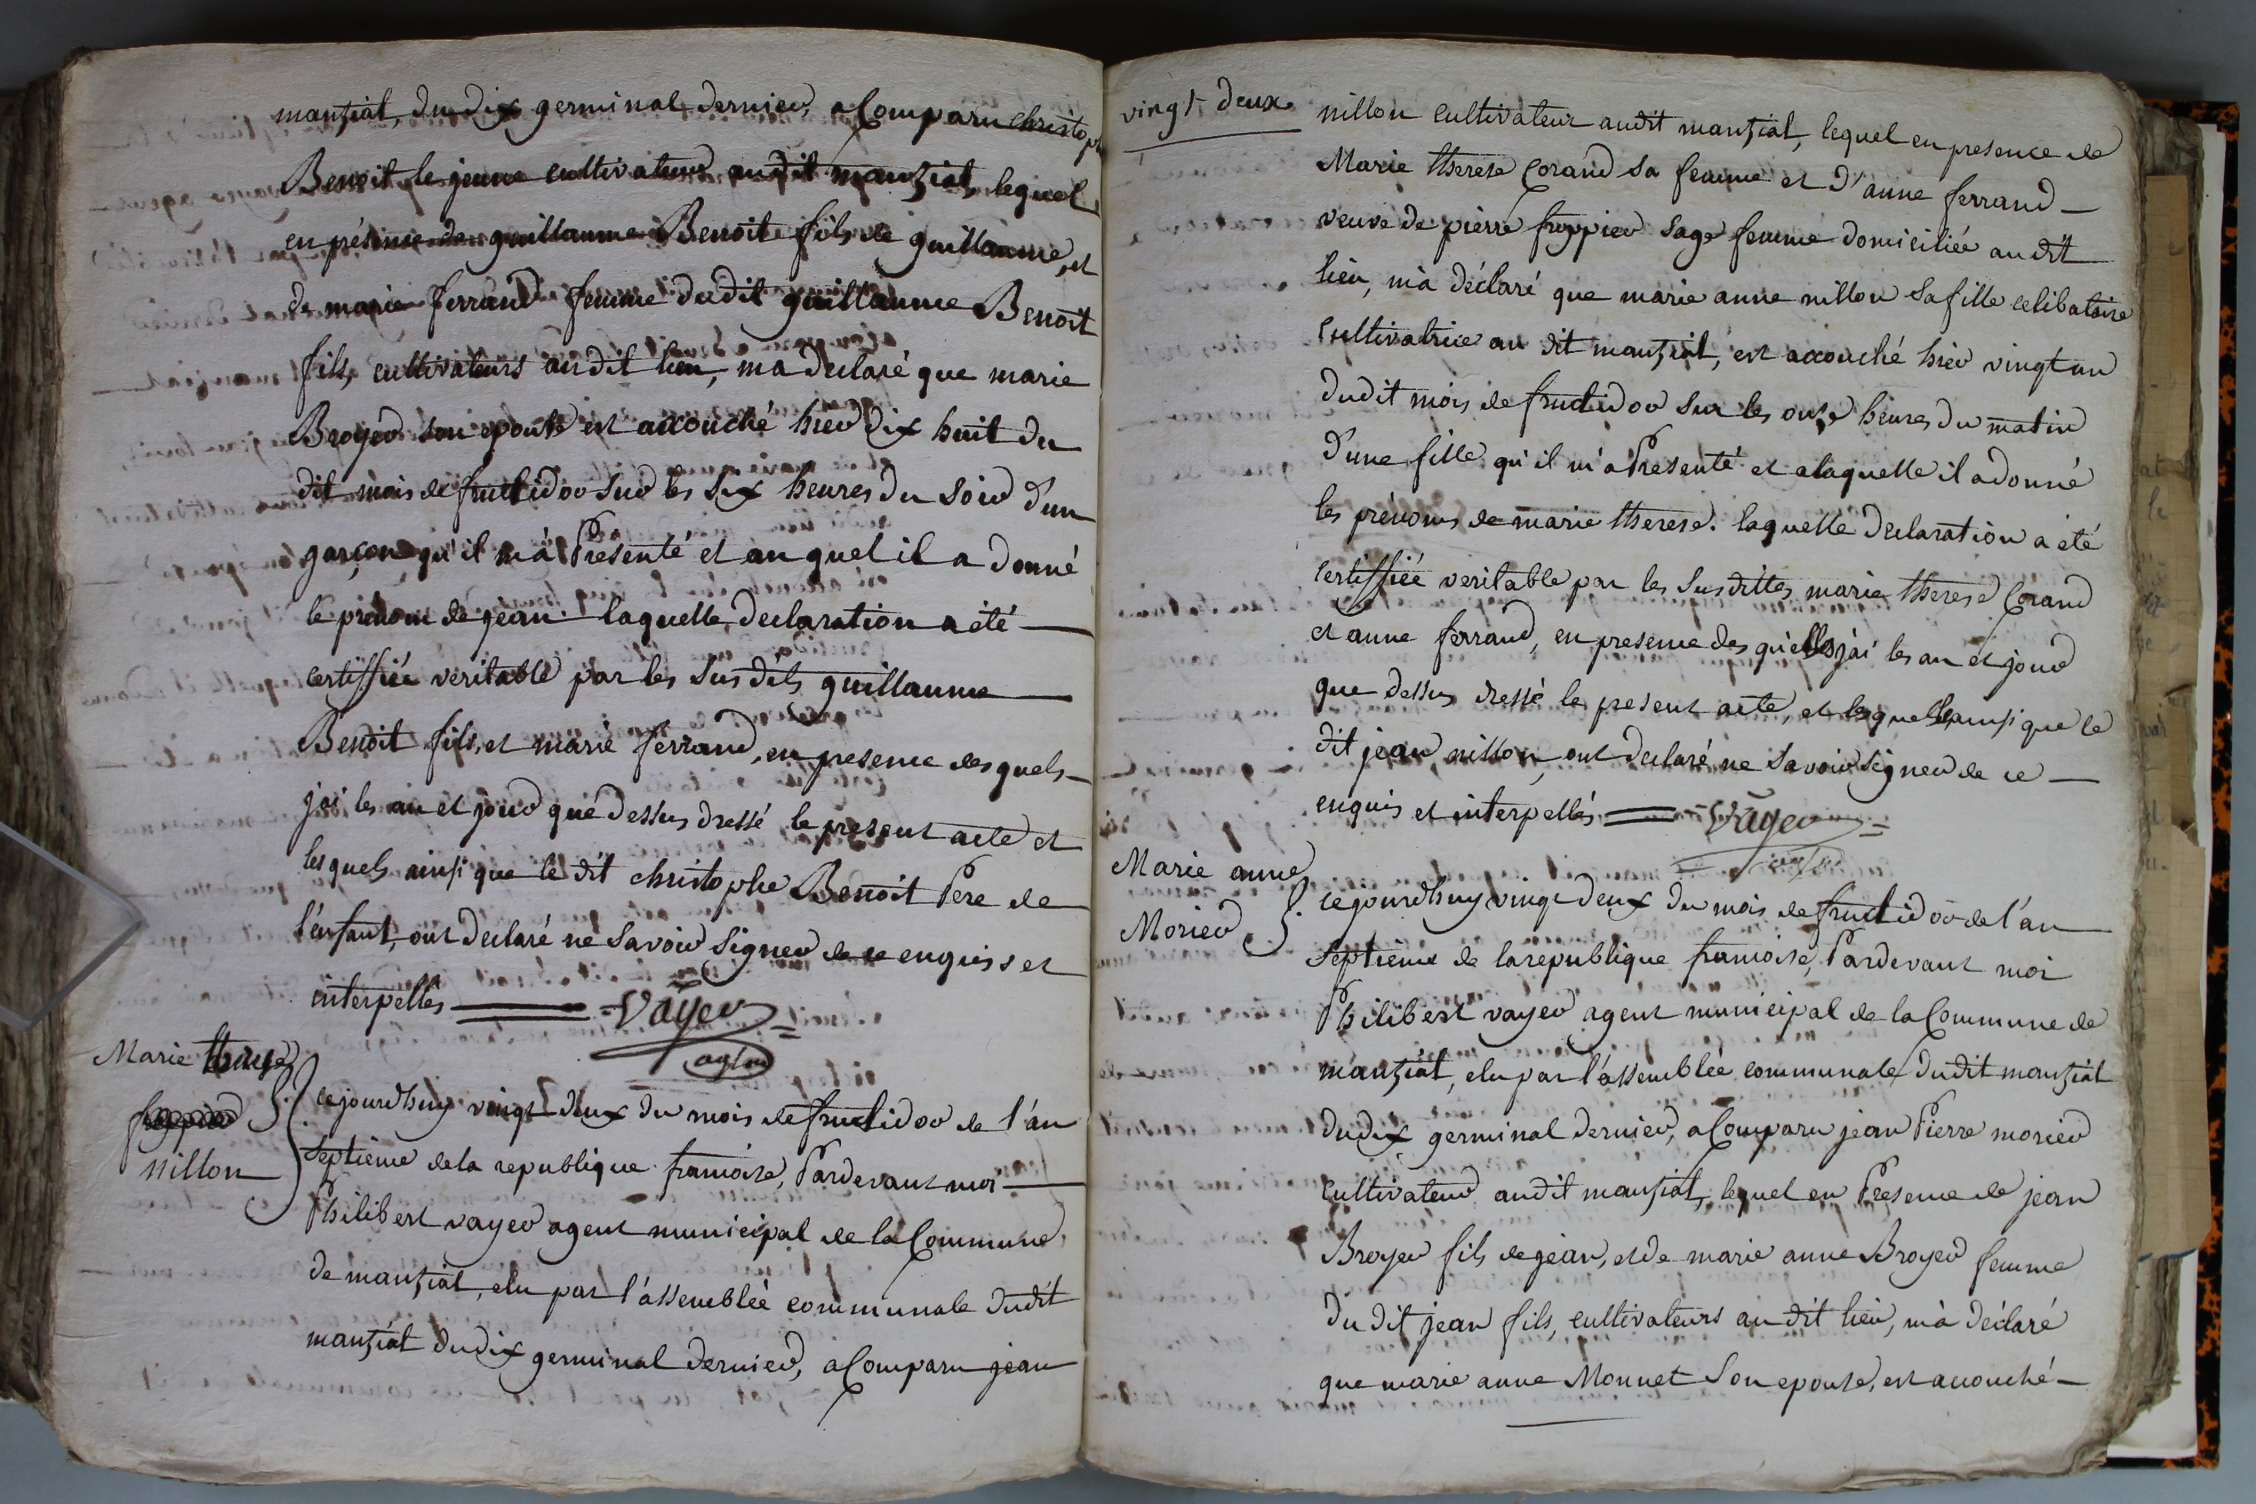 manziat, du dix germinal dernier, a Comparu christoph
Benoit le jeune cultivateur audit manziat, lequel
en présence de guillaume Benoit fils de guillaume, et
de marie ferrand femme dudit guillaume Benoit
fils, cultivateurs audit lieu, ma declaré que marie
Broyer son epouse est accouché hier dix huit du
dit mois de fructidor sur les six heures du soir d'un
garçon qu'il m'à Presenté et au quel il a donné
le prénom de jean. laquelle declaration a été
certiffiée veritable par les sus dits guillaume
Benoit fils, et marie ferrand, en presence des quels
j'ai les an et jour que dessus dressé le present acte et
les quels ainsi que le dit christophe Benoit Pere de
l'enfant, ont declaré ne savoir signer de ce enquis et
interpellés = Vayer =
agent
Marie therese
nillon
cejourdhuy vingt deux du mois de fructidor de l'an
septième de la republique francoise, Pardevant moi
Philibert vayer agent municipal de la Commune
de manziat, elu par l'assemblée communale dudit
manziat du dix germinal dernier, a Comparu jean
vingt deux
nillon cultivateur audit manziat, lequel en presence de
Marie therese Corand sa femme et d'anne ferrand
veuve de pierre froppier sage femme domiciliée audit
lieu, m'à déclaré que marie anne nillon sa fille celibataire
cultivatrice au dit manziat, est accouché hier vingt un
dudit mois de fructidor sur les onze heures du matin
d'une fille qu'il m'a Presenté et a laquelle il a donné
les prénoms de marie therese. laquelle declaration a été
certiffiée veritable par les sus dittes marie therese Corand
et anne ferrand, en presence des quelles j'ai les an et jour
que dessus dressé le present acte, et lesquelles ainsi que le
dit jean nillon, ont declaré ne savoir signer de ce
enquis et interpellés = Vayer =
Marie anne
Morier
cejourdhuy vingt deux du mois de fructidor de l'an
septieme de la republique francoise, Pardevant moi
Philibert vayer agent municipal de la Commune de
manziat, elu par l'assemblée communale dudit manziat
du dix germinal dernier, a Comparu jean Pierre morier
cultivateur audit manziat, lequel en Presence de jean
Broyer fils de jean, et de marie anne Broyer femme
du dit jean fils, cultivateurs au dit lieu, m'à déclaré
que marie anne Monnet son epouse, est accouché